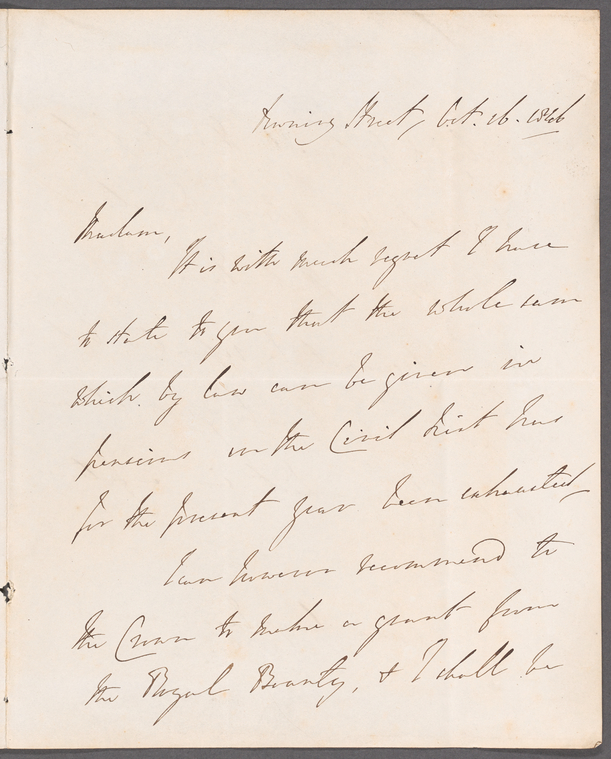 Downing Street, Oct. 16. 1846
Madam,
It is with much regret I have
to state to you that the whole sum
which by law can be given in
pensions on the Civil List has
for the present year been exhausted,
I can however recommend to
the Crown to make a grant from
the Royal Bounty, & I shall be